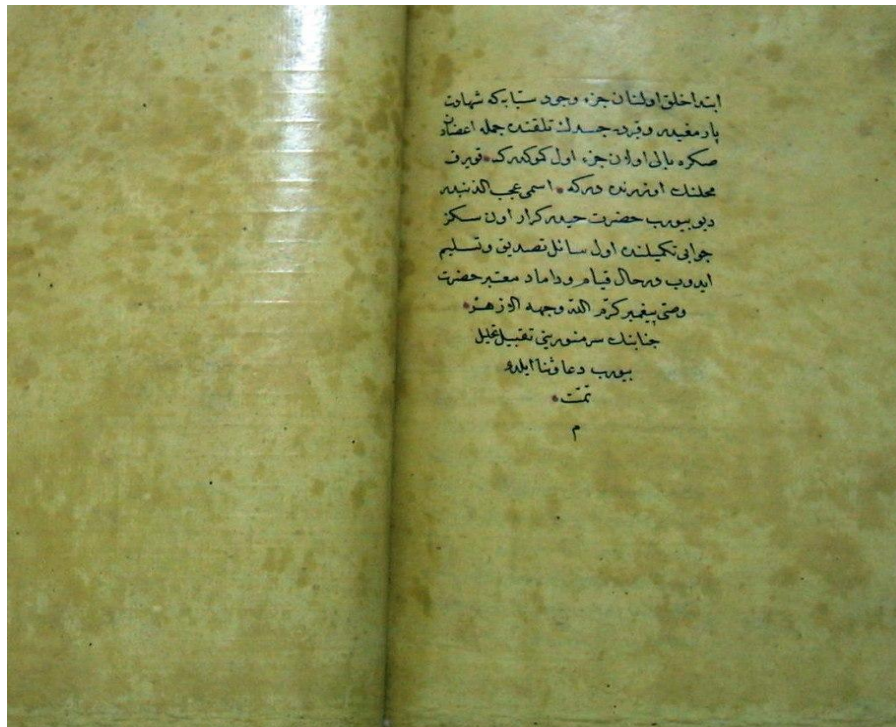 ابتدا خلق اولنان جزء وجود سبّابه كه شهادت
پارمغیدر و قبرده جسدك تلفنده جمله اعضادن
صكره بالی اولان جزء اول كوكدركه قویرق
محلنك اوزرنده دركه اسمی عجب الذنبدر
دیو بیوروب حضرت حیدر كرار اون سكز
جوابی تكمیلنده اول سائل تصدیق و تسلیم
ایدوب درحال قیام و داماد معتبر حضرت
وصیّ پیغمبر كرّم اللّه وجهه الازهر
جنابنك سر منورینی تقبیل
بیوروب دعا و ثنا ایلدی
تمّت
م